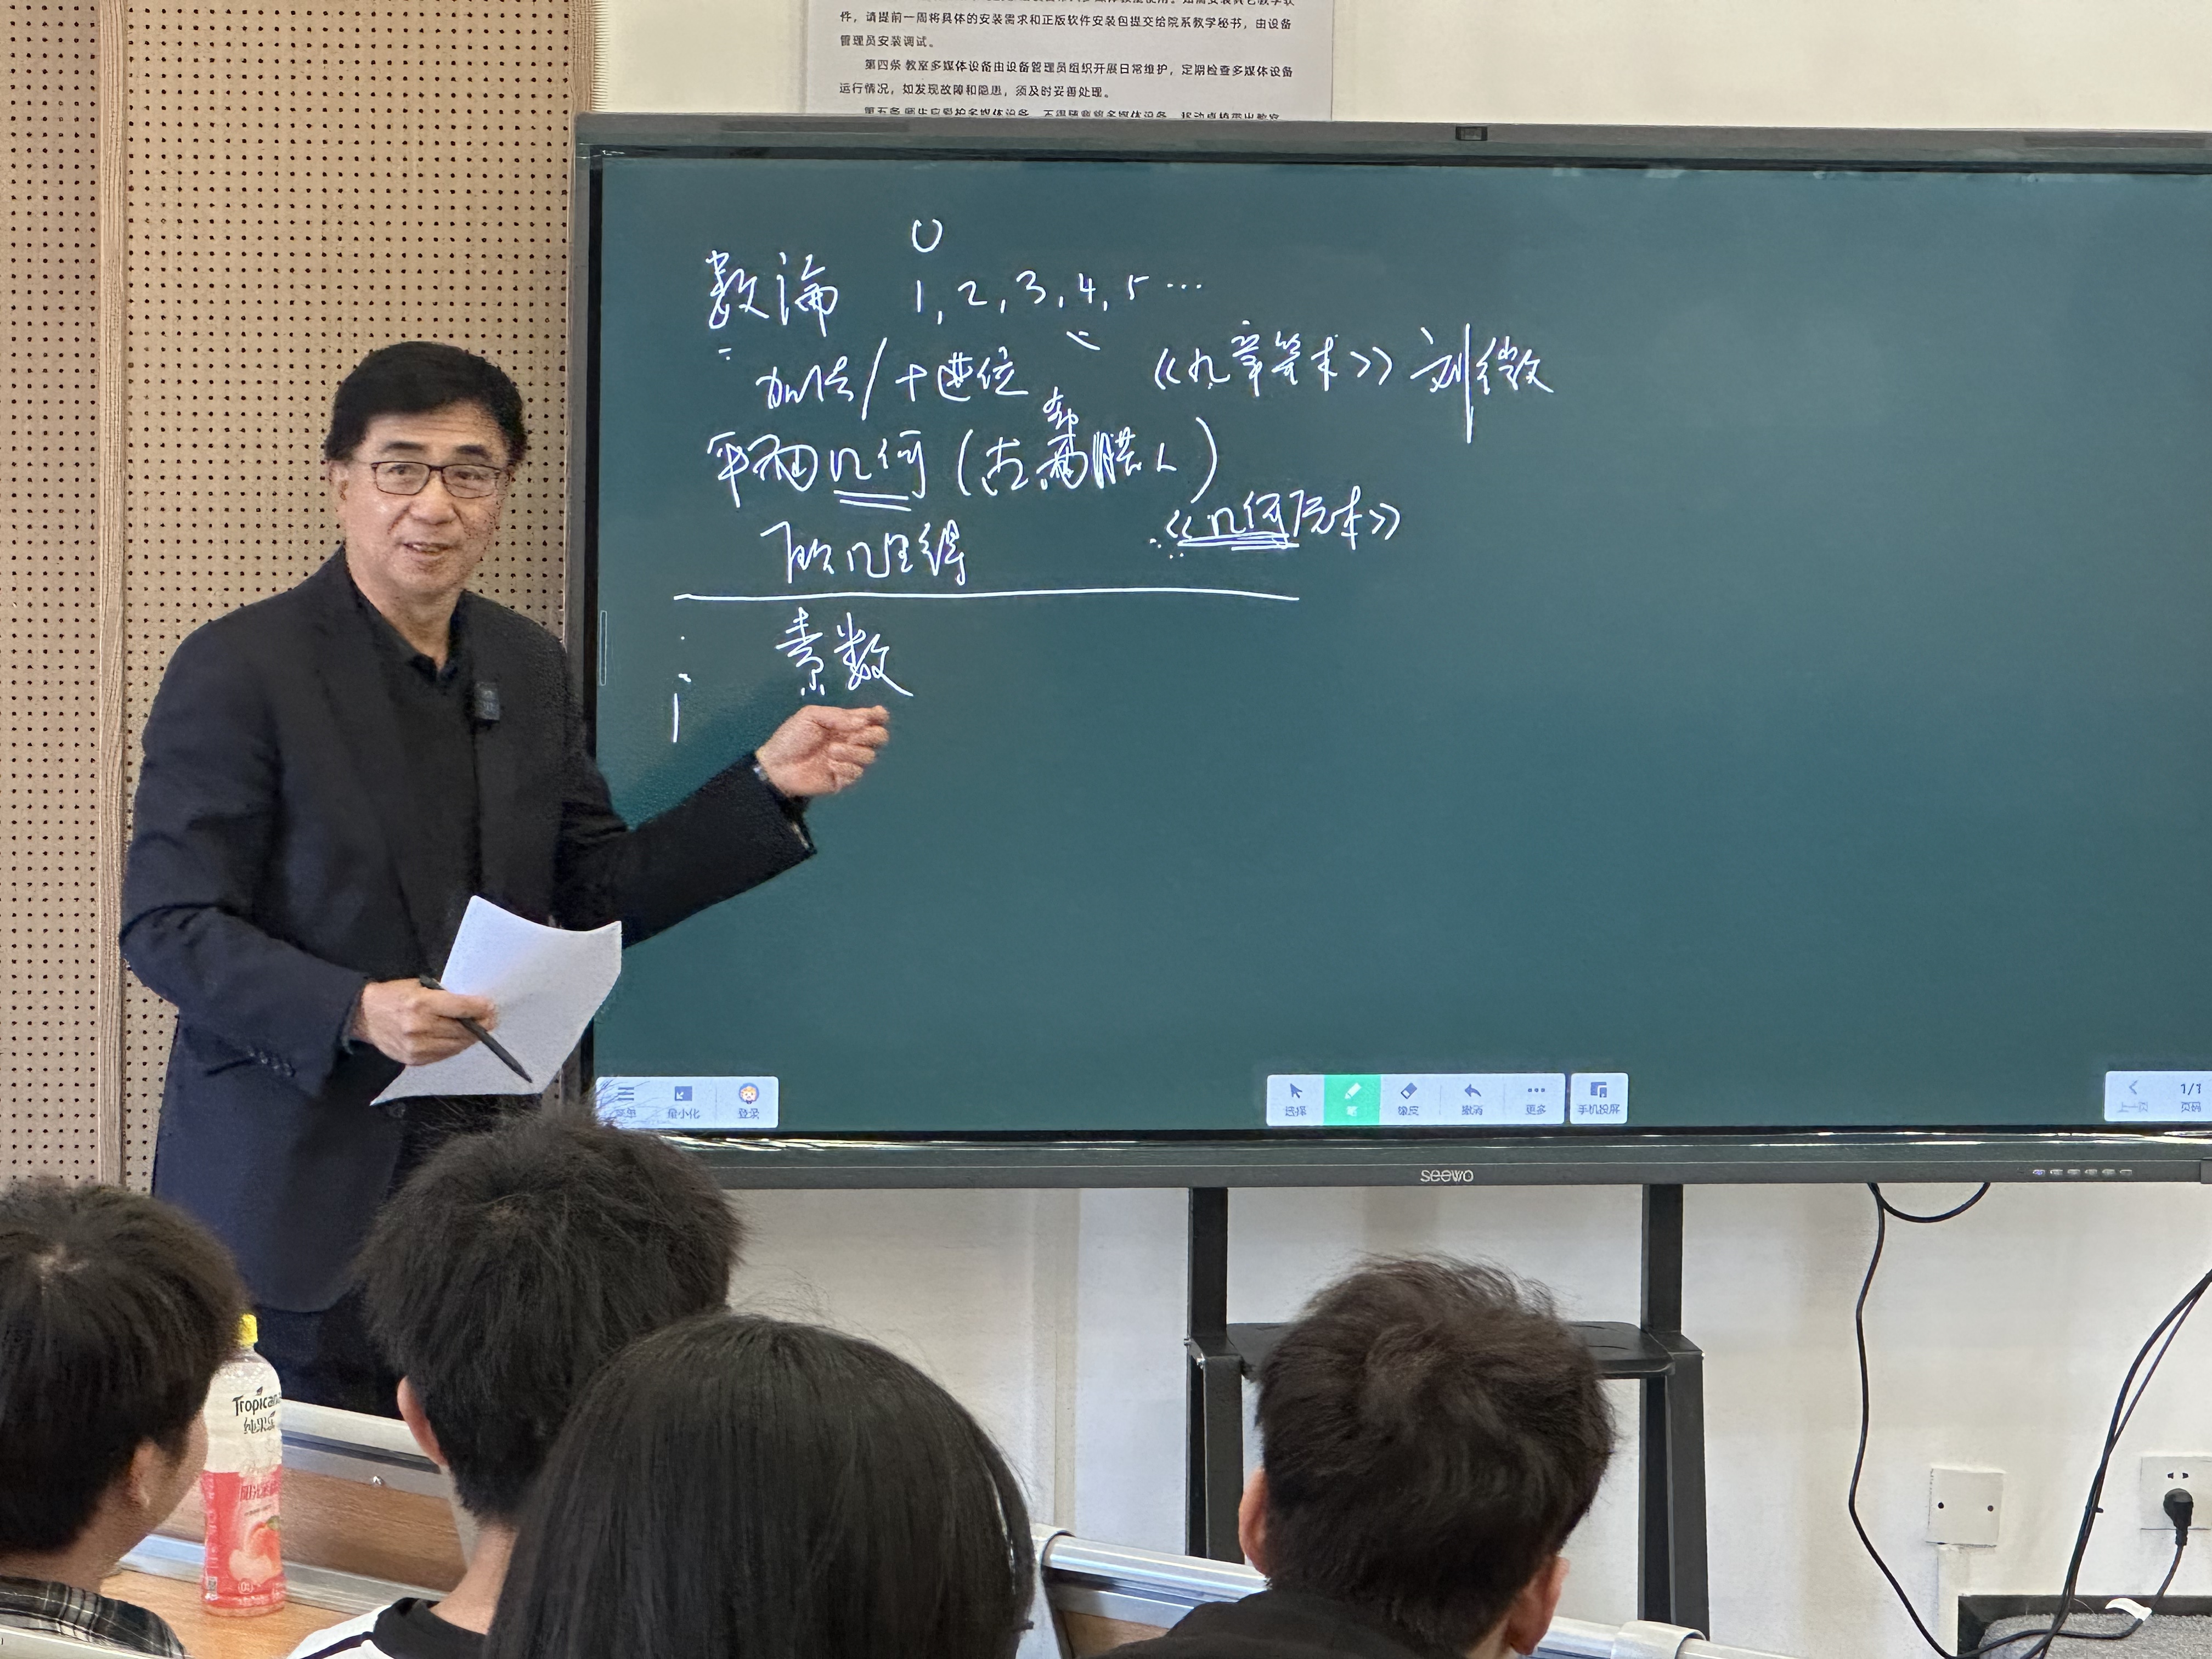 件，请提前一周将具体的安装需求和正版软件安装包提交给院系教学秘书，由设备
管理员安装调试。
第四条 教室多媒体设备由设备管理员组织开展日常维护，定期检查多媒体设备
运行情况，如发现故障和隐患，须及时妥善处理。
0
数論 1, 2, 3, 4, 5 …
加法/十进位 《九章算术》 刘徽
平面几何 (古希腊人)
《几何原本》
欧几里得
素数
菜单 最小化 登录
选择 笔 橡皮 撤消 更多 手机投屏
上一页 1/1 页码
seewo
Tropicana
纯果乐